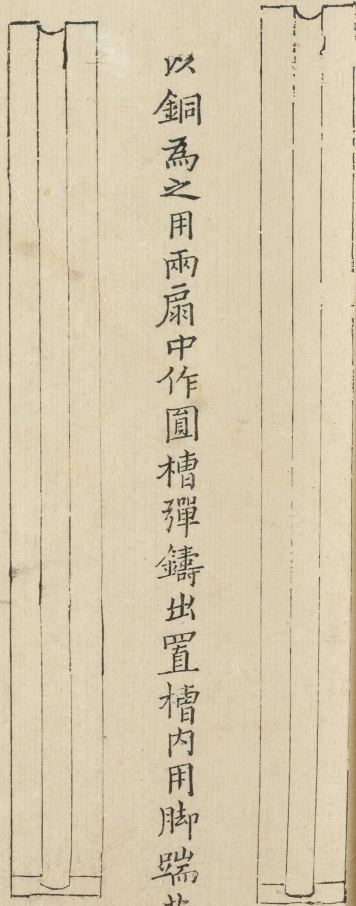 以銅為之用兩扇中作圓槽彈鑄出置槽内用脚踹